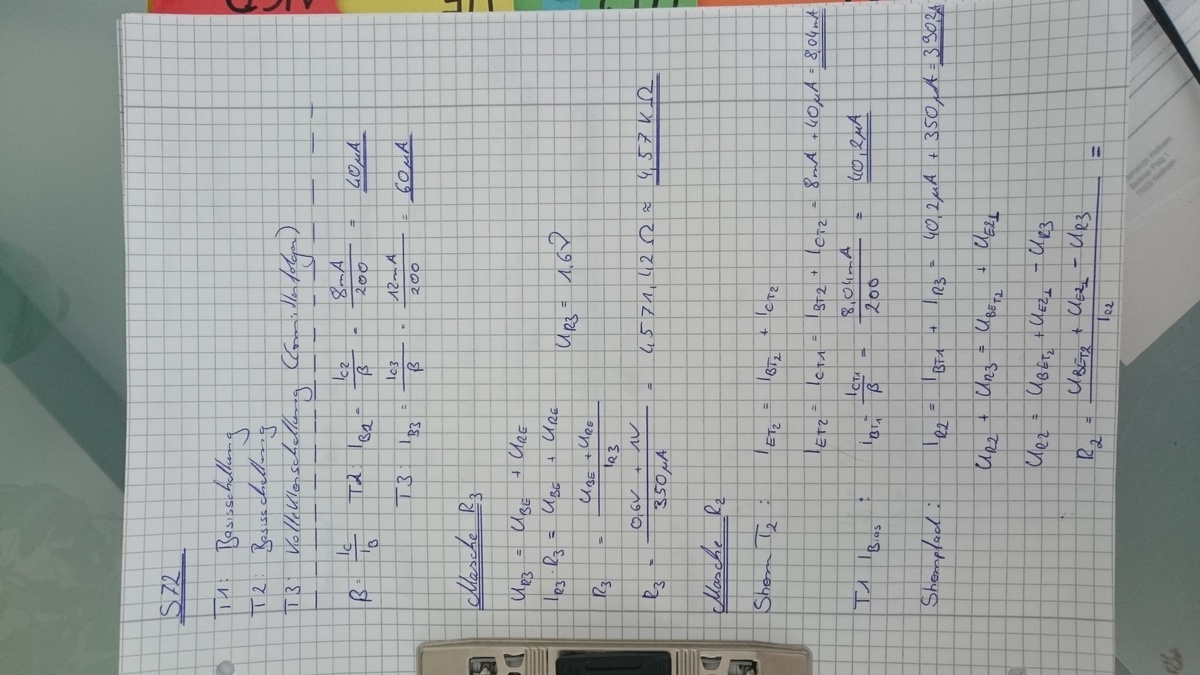 S72
T1: Basisschaltung
T2: Basisschaltung
T3: Kollektorschaltung (Emitterfolger)
β = IC/IB T2: IB2 = IC2/β = 8mA/200 = 40µA
T3: IB3 = IC3/β = 12mA/200 = 60µA
Masche R3
UR3 = UBE + URE
IR3 · R3 = UBE + URE UR3 = 1,6V
R3 = (UBE + URE)/IR3
R3 = (0,6V + 1V)/350µA = 4571,42 Ω ≈ 4,57 KΩ
Masche R2
Strom T2 : IET2 = IBT2 + ICT2
IET2 = ICT1 = IBT2 + ICT2 = 8mA + 40µA = 8,04mA
T1 IBias : IBT1 = ICT1/β = 8,04mA/200 = 40,2µA
Strompfad : IR2 = IBT1 + IR3 = 40,2µA + 350µA = 390,2
UR2 + UR3 = UBET2 + UE2⊥
UR2 = UBET2 + UE2⊥ - UR3
R2 = (UBET2 + UE2⊥ - UR3)/IR2 =